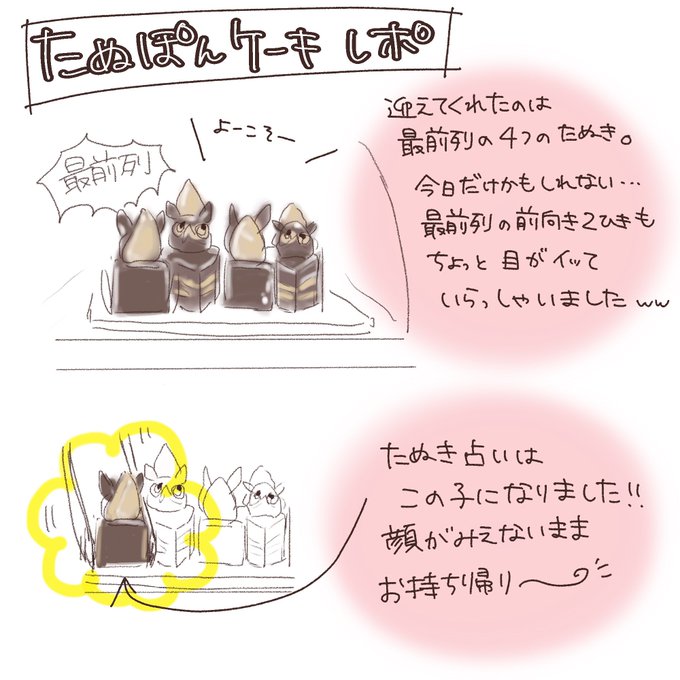 たぬぽんケーキ レポ
迎えてくれたのは
最前列の4つのたぬき。
今日だけかもしれない…
最前列の前向き2ひきも
ちょっと目がイッて
いらっしゃいましたww
よーこそー
最前列
たぬき占いは
この子になりました!!
顔がみえないまま
お持ち帰り〜